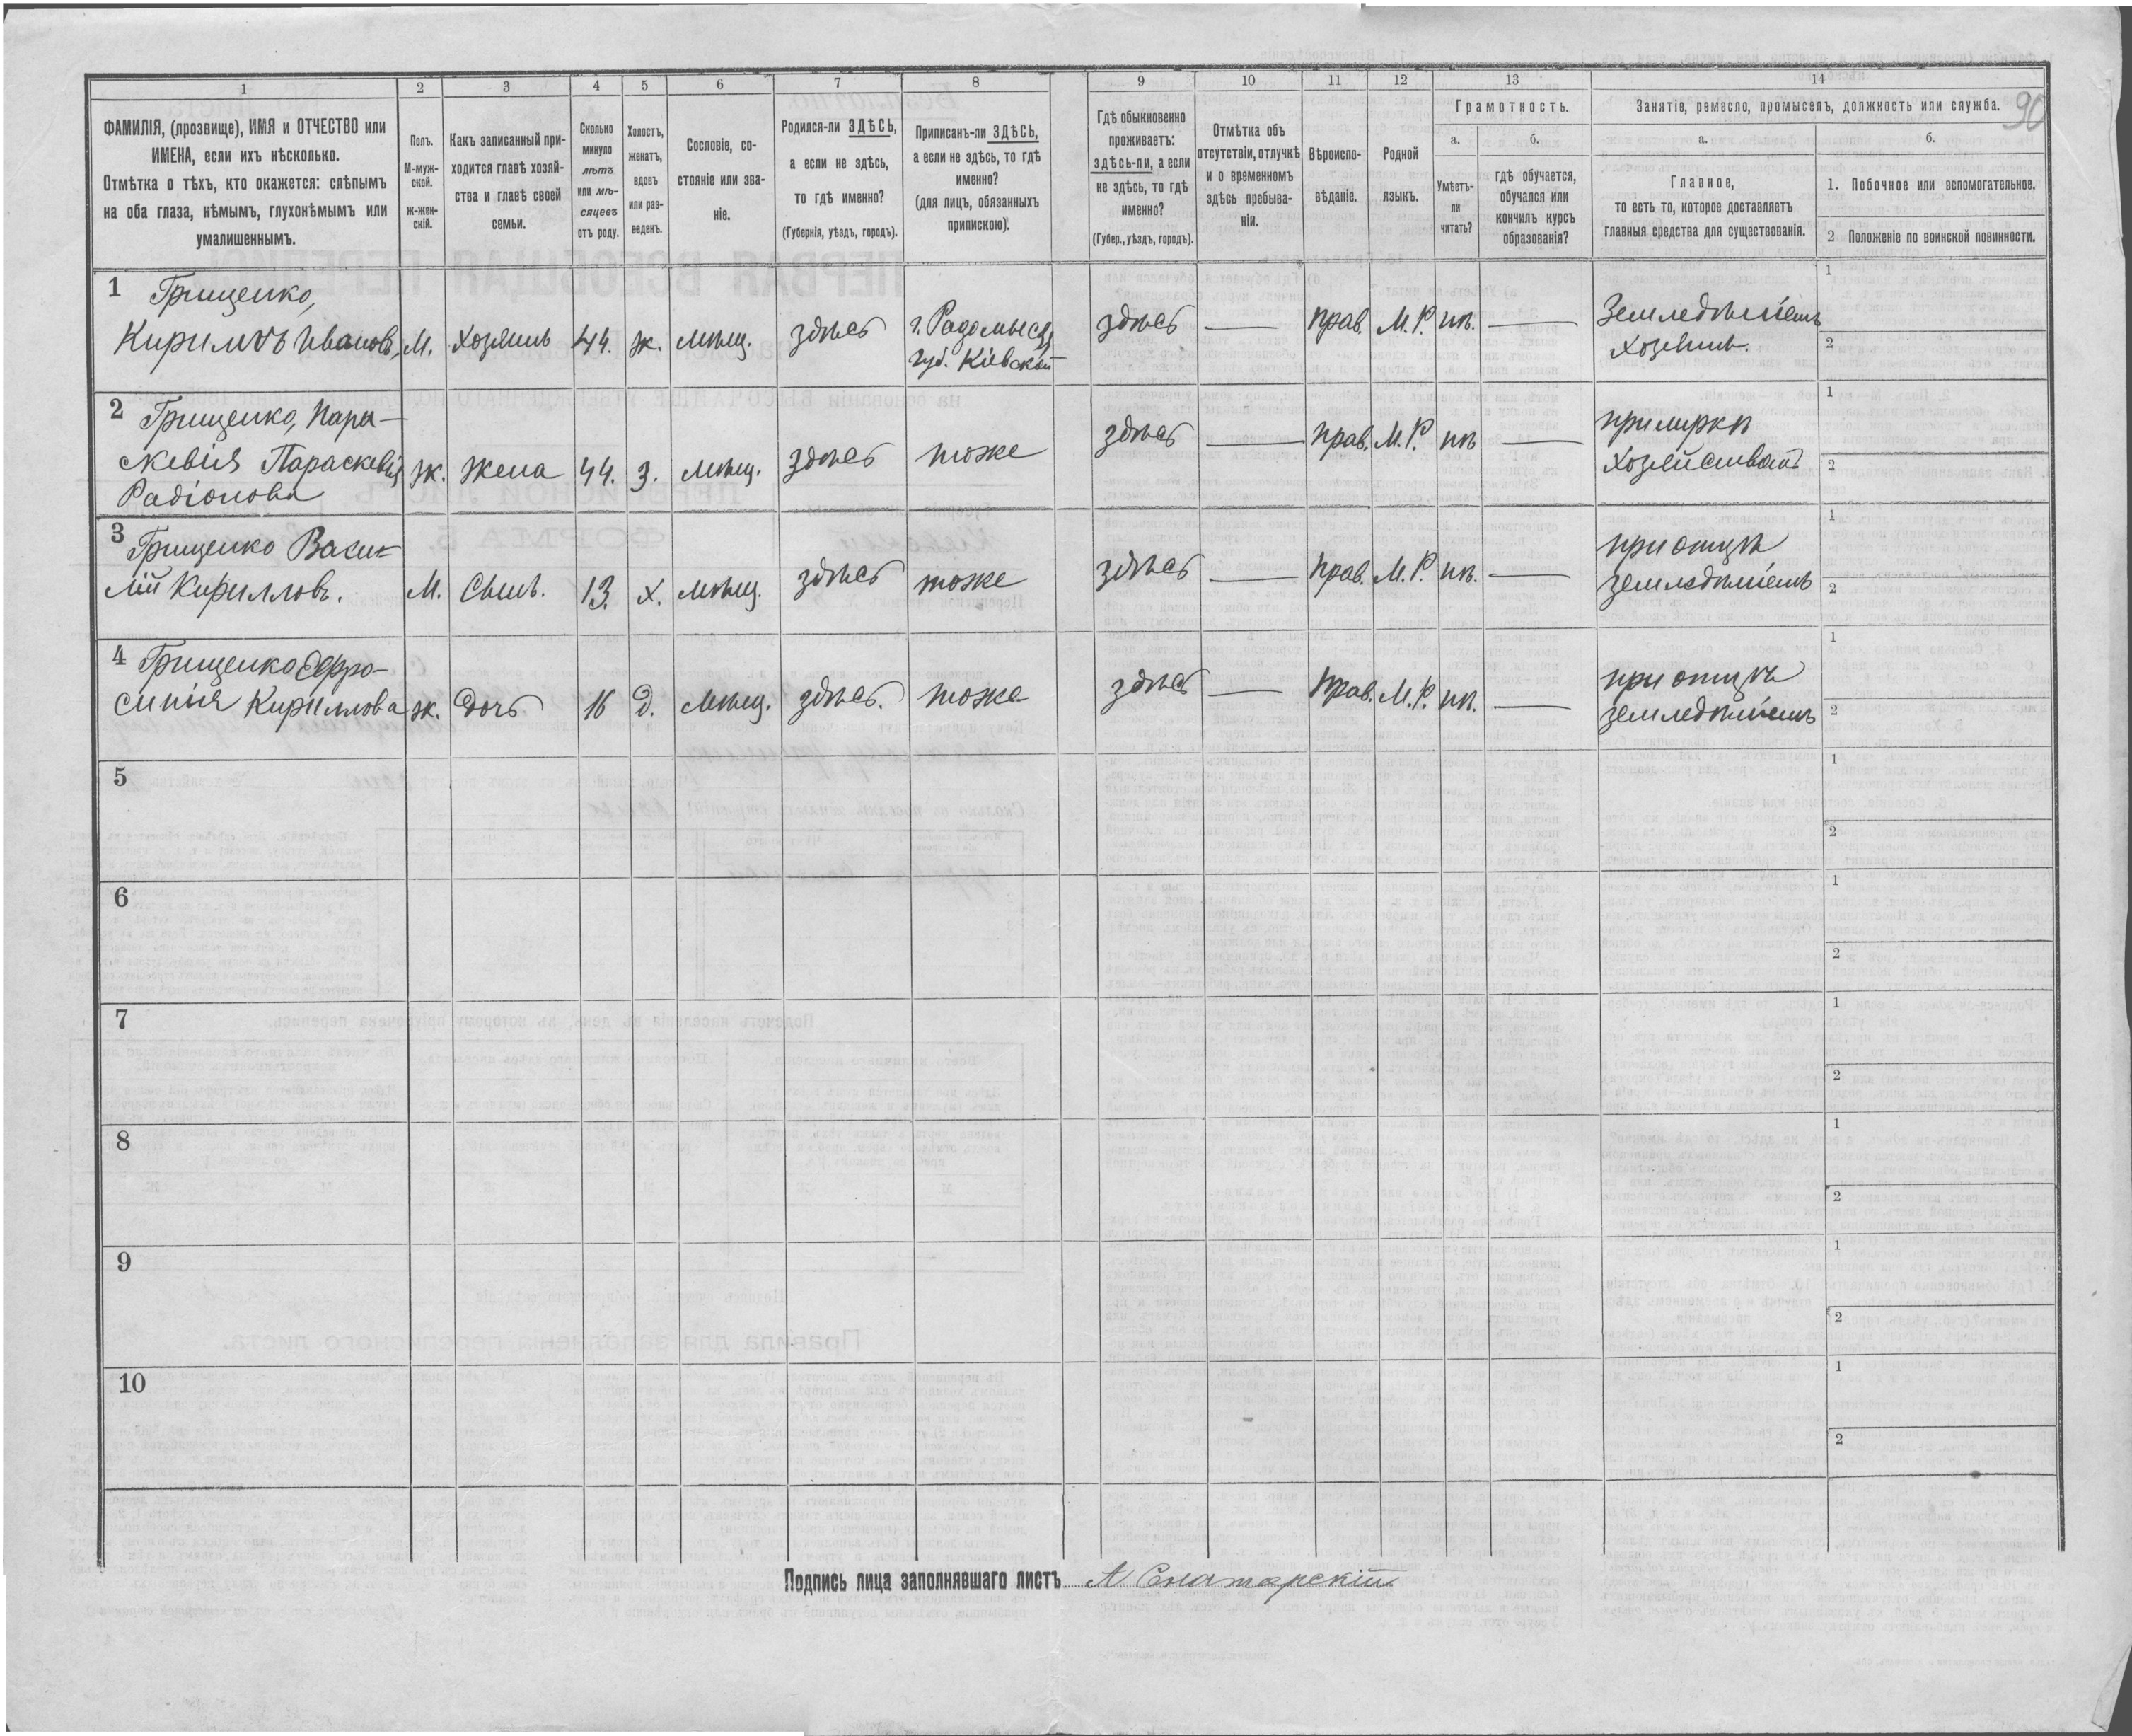 90
1 2 3 4 5 6 7 8 9 10 11 12 13 14
ФАМИЛІЯ, (прозвище), ИМЯ и ОТЧЕСТВО или
ИМЕНА, если ихъ нѣсколько.
Отмѣтка о тѣхъ, кто окажется: слѣпымъ
на оба глаза, нѣмымъ, глухонѣмымъ или
умалишеннымъ.
Полъ.
М-муж-
ской.
Ж-жен-
скій.
Какъ записанный при-
ходится главѣ хозяй-
ства и главѣ своей
семьи.
Сколько
минуло
лѣтъ
или мѣ-
сяцевъ
отъ роду.
Холостъ,
женатъ,
вдовъ
или раз-
веденъ.
Сословіе, со-
стояніе или зва-
ніе.
Родился-ли ЗДѢСЬ,
а если не здѣсь,
то гдѣ именно?
(Губернія, уѣздъ, городъ).
Приписанъ-ли ЗДѢСЬ,
а если не здѣсь, то гдѣ
именно?
(для лицъ, обязанныхъ
припискою).
Гдѣ обыкновенно
проживаетъ:
здѣсь-ли, а если
не здѣсь, то гдѣ
именно?
(Губер., уѣздъ, городъ).
Отмѣтка объ
отсутствіи, отлучкѣ
и о временномъ
здѣсь пребыва-
ніи.
Вѣроиспо-
вѣданіе.
Родной
языкъ.
Грамотность.
а.
Умѣетъ-
ли
читать?
б.
гдѣ обучается,
обучался или
кончилъ курсъ
образованія?
Занятіе, ремесло, промыселъ, должность или служба.
а.
Главное,
то есть то, которое доставляетъ
главныя средства для существованія.
б.
1. Побочное или вспомогательное.
2 Положеніе по воинской повинности.
1 Грищенко,
Кириллъ Ивановъ,
М.
Хозяинъ
44.
ж.
мѣщ.
здѣсь
г. Радомысль
губ. Кіевской
здѣсь
—
прав.
М. Р.
нѣ.
—
Земледѣліемъ
хозяинъ.
1
2
2 Грищенко, Пара-
скевія Параскевія
Радіонова
ж.
жена
44.
з.
мѣщ.
здѣсь
тоже
здѣсь
—
прав.
М. Р.
нѣ
—
1
2
3 Грищенко Васи=
лій Кирилловъ.
М.
Сынъ.
13.
х.
мѣщ.
здѣсь
тоже
здѣсь
—
прав.
М. Р.
нѣ.
—
при отцѣ
земледѣліемъ
1
2
4 Грищенко Ефро-
синія Кириллова
ж.
Дочь
16
д.
мѣщ.
здѣсь.
тоже
здѣсь
—
прав.
М. Р.
нѣ.
—
при отцѣ
земледѣліемъ
1
2
5
1
2
6
1
2
7
1
2
8
1
2
9
1
2
10
1
2
Подпись лица заполнявшаго листъ А Снатарскій